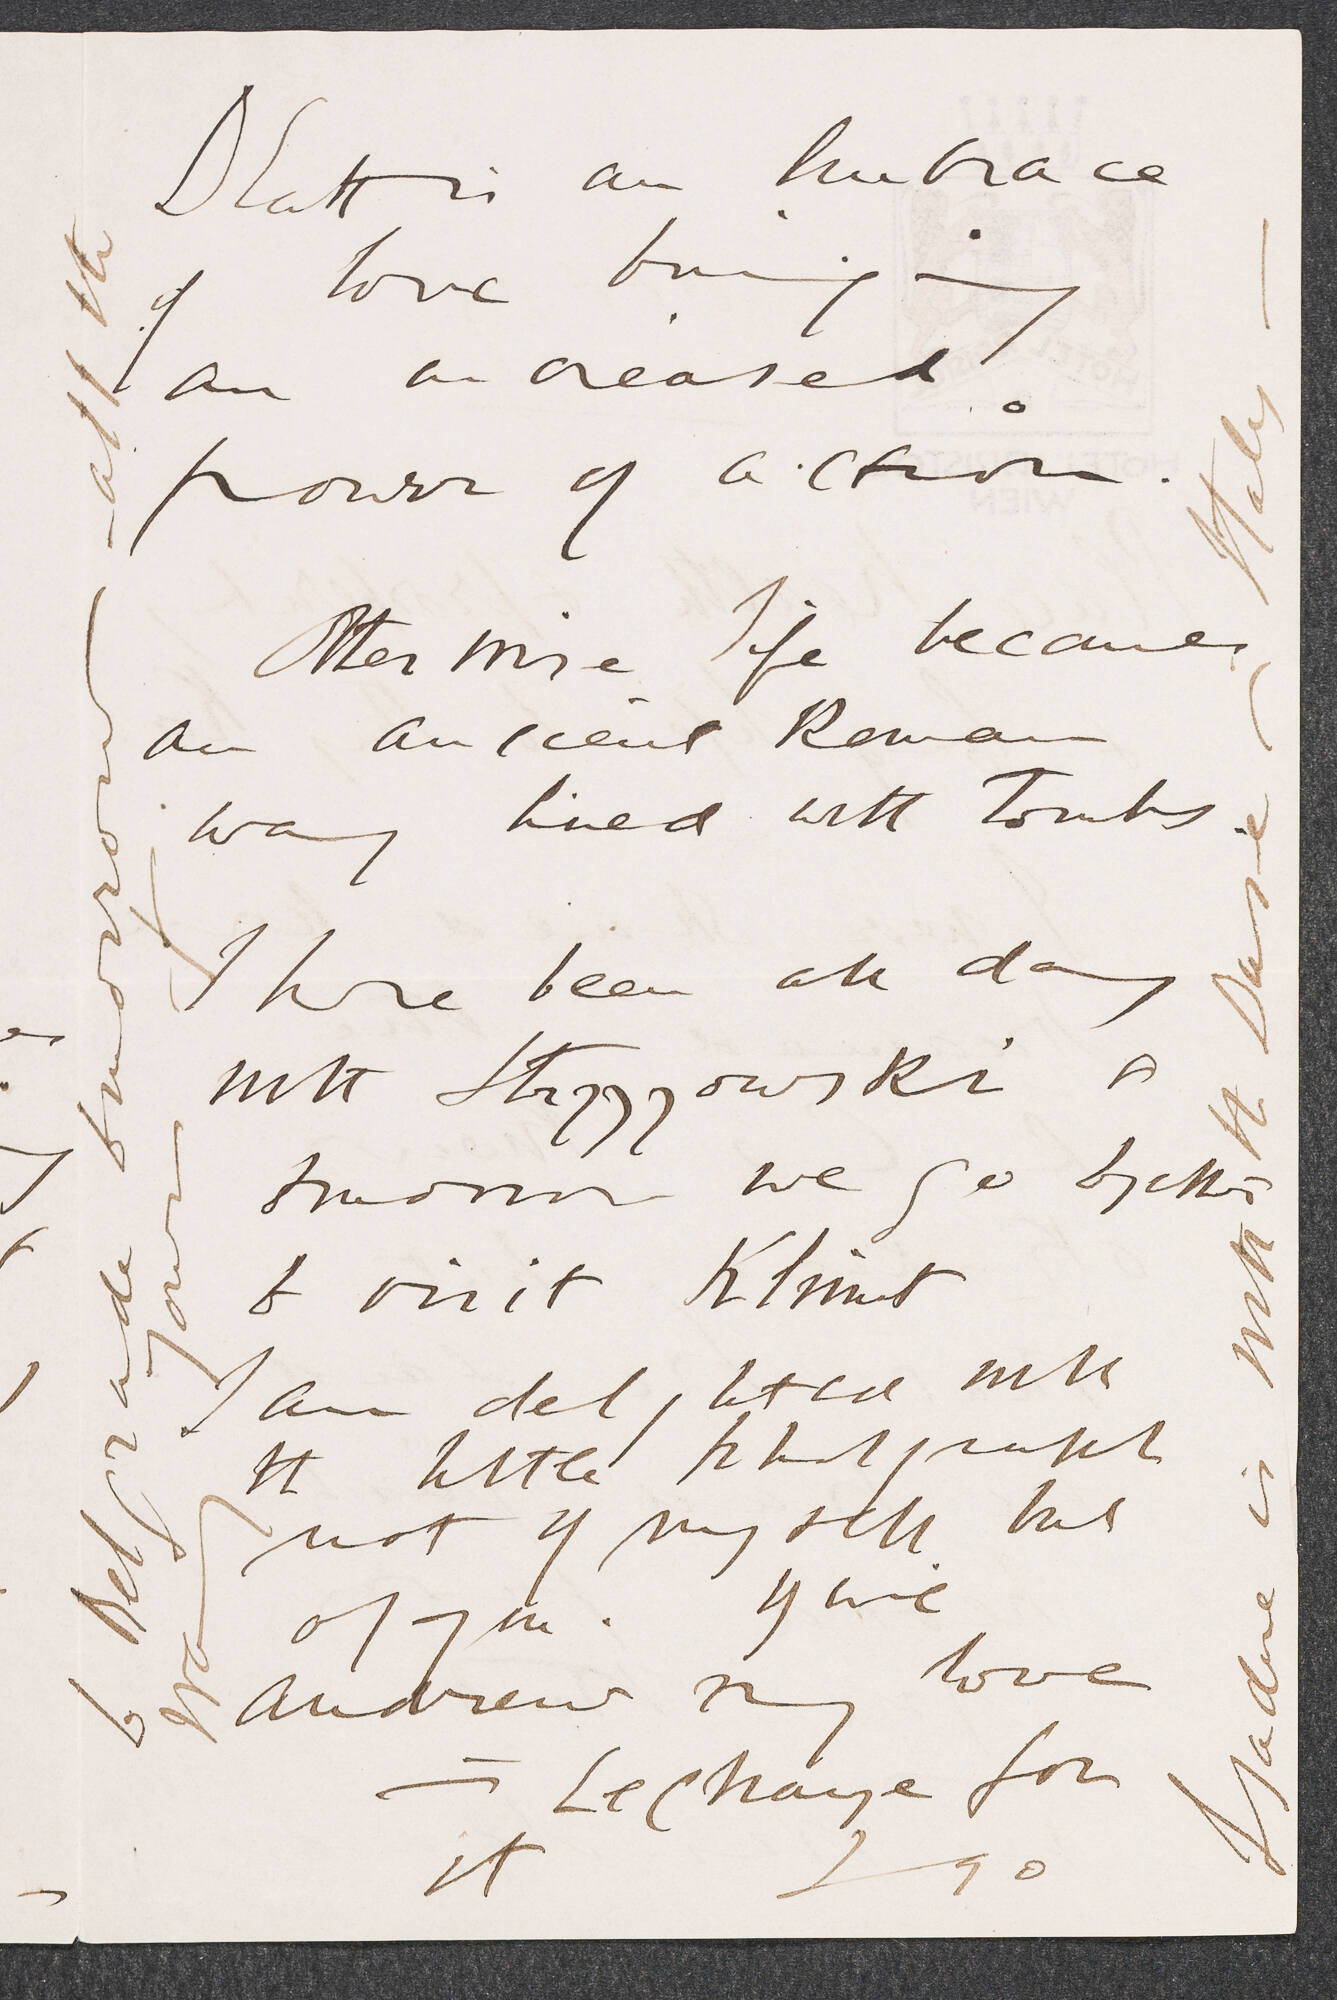 Death is an embrace
of love bringing
an increased
power of action.
Otherwise life becomes
an ancient Roman
way lined with Tombs.
I have been all day
with Strzygowski &
tomorrow we go together
to visit Klimt
I am delighted with
the little photograph
not of myself but
of you. Give
Andrew my love
I go
to Belgrade tomorrow - all the
way
Nadine is with the Duse (Italy -
HOTEL BRISTOL
WIEN